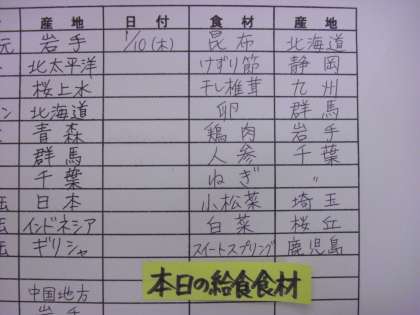 産地 日付 食材 産地
元 岩手 1/10(木) 昆布 北海道
北太平洋 けずり節 静岡
桜上水 干し椎茸 九州
ン 北海道 卵 群馬
青森 鶏肉 岩手
群馬 人参 千葉
千葉 ねぎ 〃
日本 小松菜 埼玉
インドネシア 白菜 桜丘
ギリシャ スイートスプリング 鹿児島
本日の給食食材
中国地方
岩手